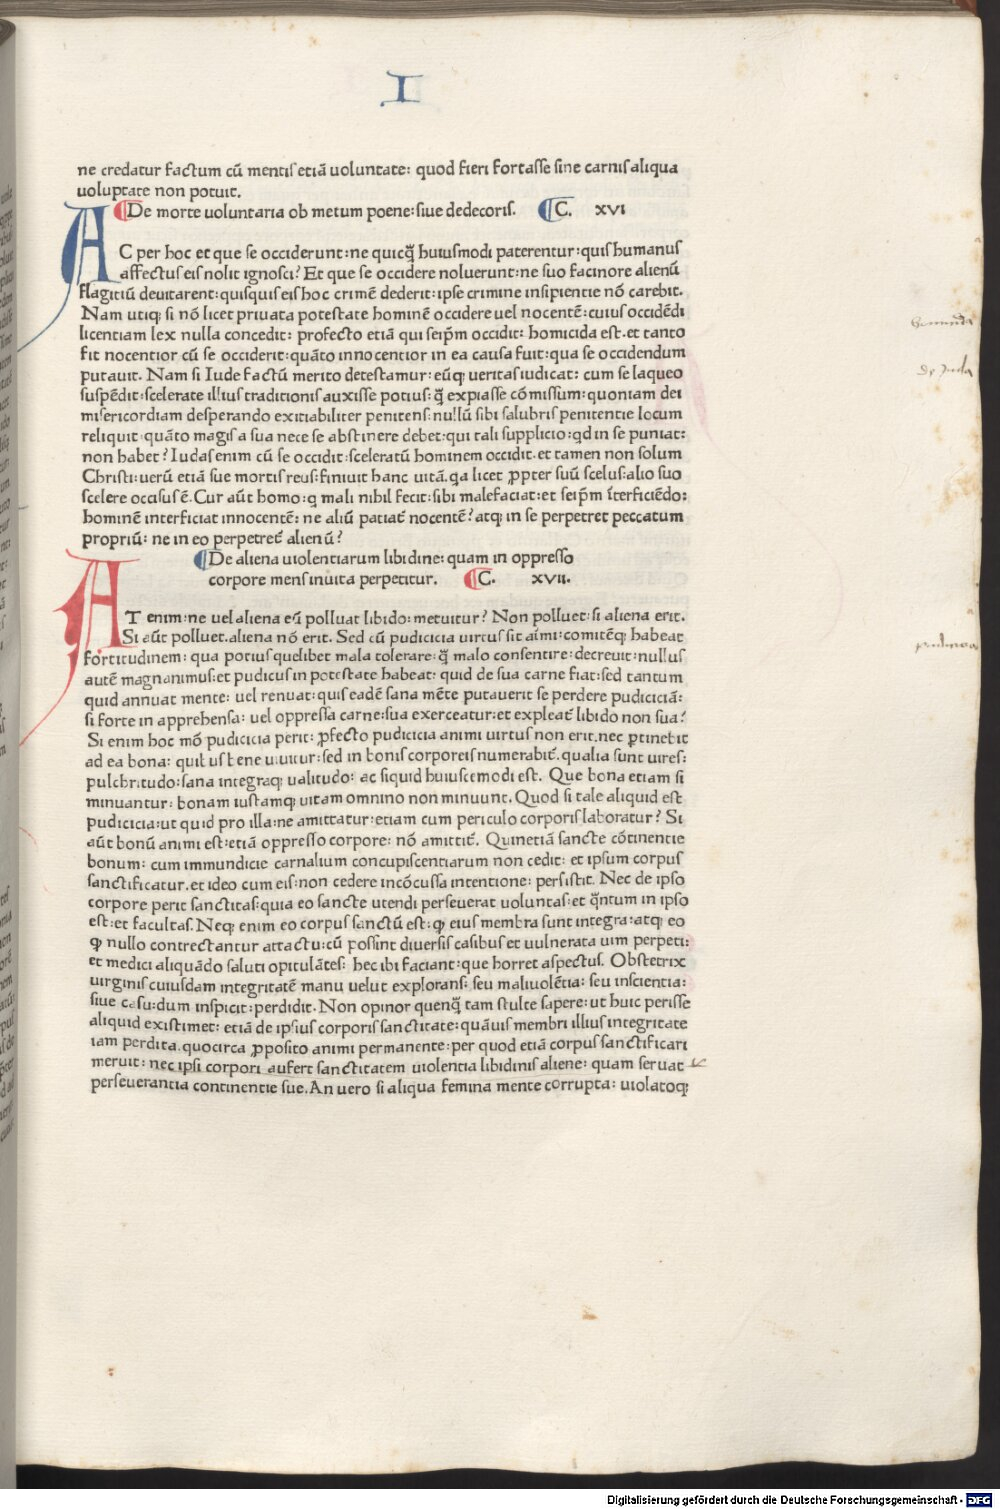 I
ne credatur factum cū mentis etiā uoluntate: quod fieri fortasse sine carnis aliqua
uoluptate non potuit.
De morte uoluntaria ob metum poene: siue dedecoris. C. XVI
AC per hoc et que se occiderunt: ne quicq̄ huiusmodi paterentur: quis humanus
affectus eis nolit ignosci? Et que se occidere noluerunt: ne suo facinore alienū
flagitiū deuitarent: quisquis eis hoc crimē dederit: ipse crimine insipientie nō carebit.
Nam utiq; si nō licet priuata potestate hominē occidere uel nocentē: cuius occidēdi
licentiam lex nulla concedit: profecto etiā qui seip̄m occidit: homicida est. et tanto
fit nocentior cū se occiderit: quāto innocentior in ea causa fuit: qua se occidendum
putauit. Nam si Iude factū merito detestamur: eūq; ueritas iudicat: cum se laqueo
suspēdit: scelerate illius traditionis auxisse potius: q̄ expiasse cōmissum: quoniam dei
misericordiam desperando exitiabiliter penitens: nullū sibi salubris penitentie locum
reliquit: quāto magis a sua nece se abstinere debet: qui tali supplicio: qd in se puniat:
non habet? Iudas enim cū se occidit: sceleratū hominem occidit. et tamen non solum
Christi: uerū etiā sue mortis reus: finiuit hanc uitā. qa licet ꝓpter suū scelus: alio suo
scelere occisus ē. Cur aūt homo: q mali nihil fecit: sibi malefaciat: et seip̄m īterficiēdo:
hominē interficiat innocentē: ne aliū patiat᷑ nocentē? atq; in se perpetret peccatum
propriū: ne in eo perpetret᷑ alienū?
De aliena uiolentiarum libidine: quam in oppresso
corpore mens inuita perpetitur. C. XVII.
AT enim: ne uel aliena eū polluat libido: metuitur? Non polluet: si aliena erit.
Si aūt polluet. aliena nō erit. Sed cū pudicicia uirtus sit aīmi: comitēq; habeat
fortitudinem: qua potius quelibet mala tolerare: q̄ malo consentire: decreuit: nullus
autē magnanimus: et pudicus in potestate habeat: quid de sua carne fiat: sed tantum
quid annuat mente: uel renuat: quis eadē sana mēte putauerit se perdere pudiciciā:
si forte in apprehensa: uel oppressa carne: sua exerceatur: et expleat᷑ libido non sua?
Si enim hoc mō pudicicia perit: ꝓfecto pudicicia animi uirtus non erit. nec ꝑtinebit
ad ea bona: quibus bene uiuitur: sed in bonis corporeis numerabit᷑. qualia sunt uires:
pulchritudo: sana integraq; ualitudo: ac siquid huiuscemodi est. Que bona etiam si
minuantur: bonam iustamq; uitam omnino non minuunt. Quod si tale aliquid est
pudicicia: ut quid pro illa: ne amittatur: etiam cum periculo corporis laboratur? Si
aūt bonū animi est: etiā oppresso corpore: nō amittit᷑. Quinetiā sancte cōtinentie
bonum: cum immundicie carnalium concupiscentiarum non cedit: et ipsum corpus
sanctificatur. et ideo cum eis: non cedere incōcussa intentione: persistit. Nec de ipso
corpore perit sanctitas: quia eo sancte utendi perseuerat uoluntas: et q̄ntum in ipso
est: et facultas. Neq; enim eo corpus sanctū est: ꝙ eius membra sunt integra: atq; eo
ꝙ nullo contrectantur attactu: cū possint diuersis casibus et uulnerata uim perpeti:
et medici aliquādo saluti opitulātes: hec ibi faciant: que horret aspectus. Obstetrix
uirginis cuiusdam integritatē manu uelut explorans: seu maliuolētia: seu inscientia:
siue casu: dum inspicit: perdidit. Non opinor quenq̄ tam stulte sapere: ut huic perisse
aliquid existimet: etiā de ipsius corporis sanctitate: quāuis membri illius integritate
iam perdita. quocirca ꝓposito animi permanente: per quod etiā corpus sanctificari
meruit: nec ipsi corpori aufert sanctitatem uiolentia libidinis aliene: quam seruat
perseuerantia continentie sue. An uero si aliqua femina mente corrupta: uiolatoq;
de Juda
Digitalisierung gefördert durch die Deutsche Forschungsgemeinschaft - DFG